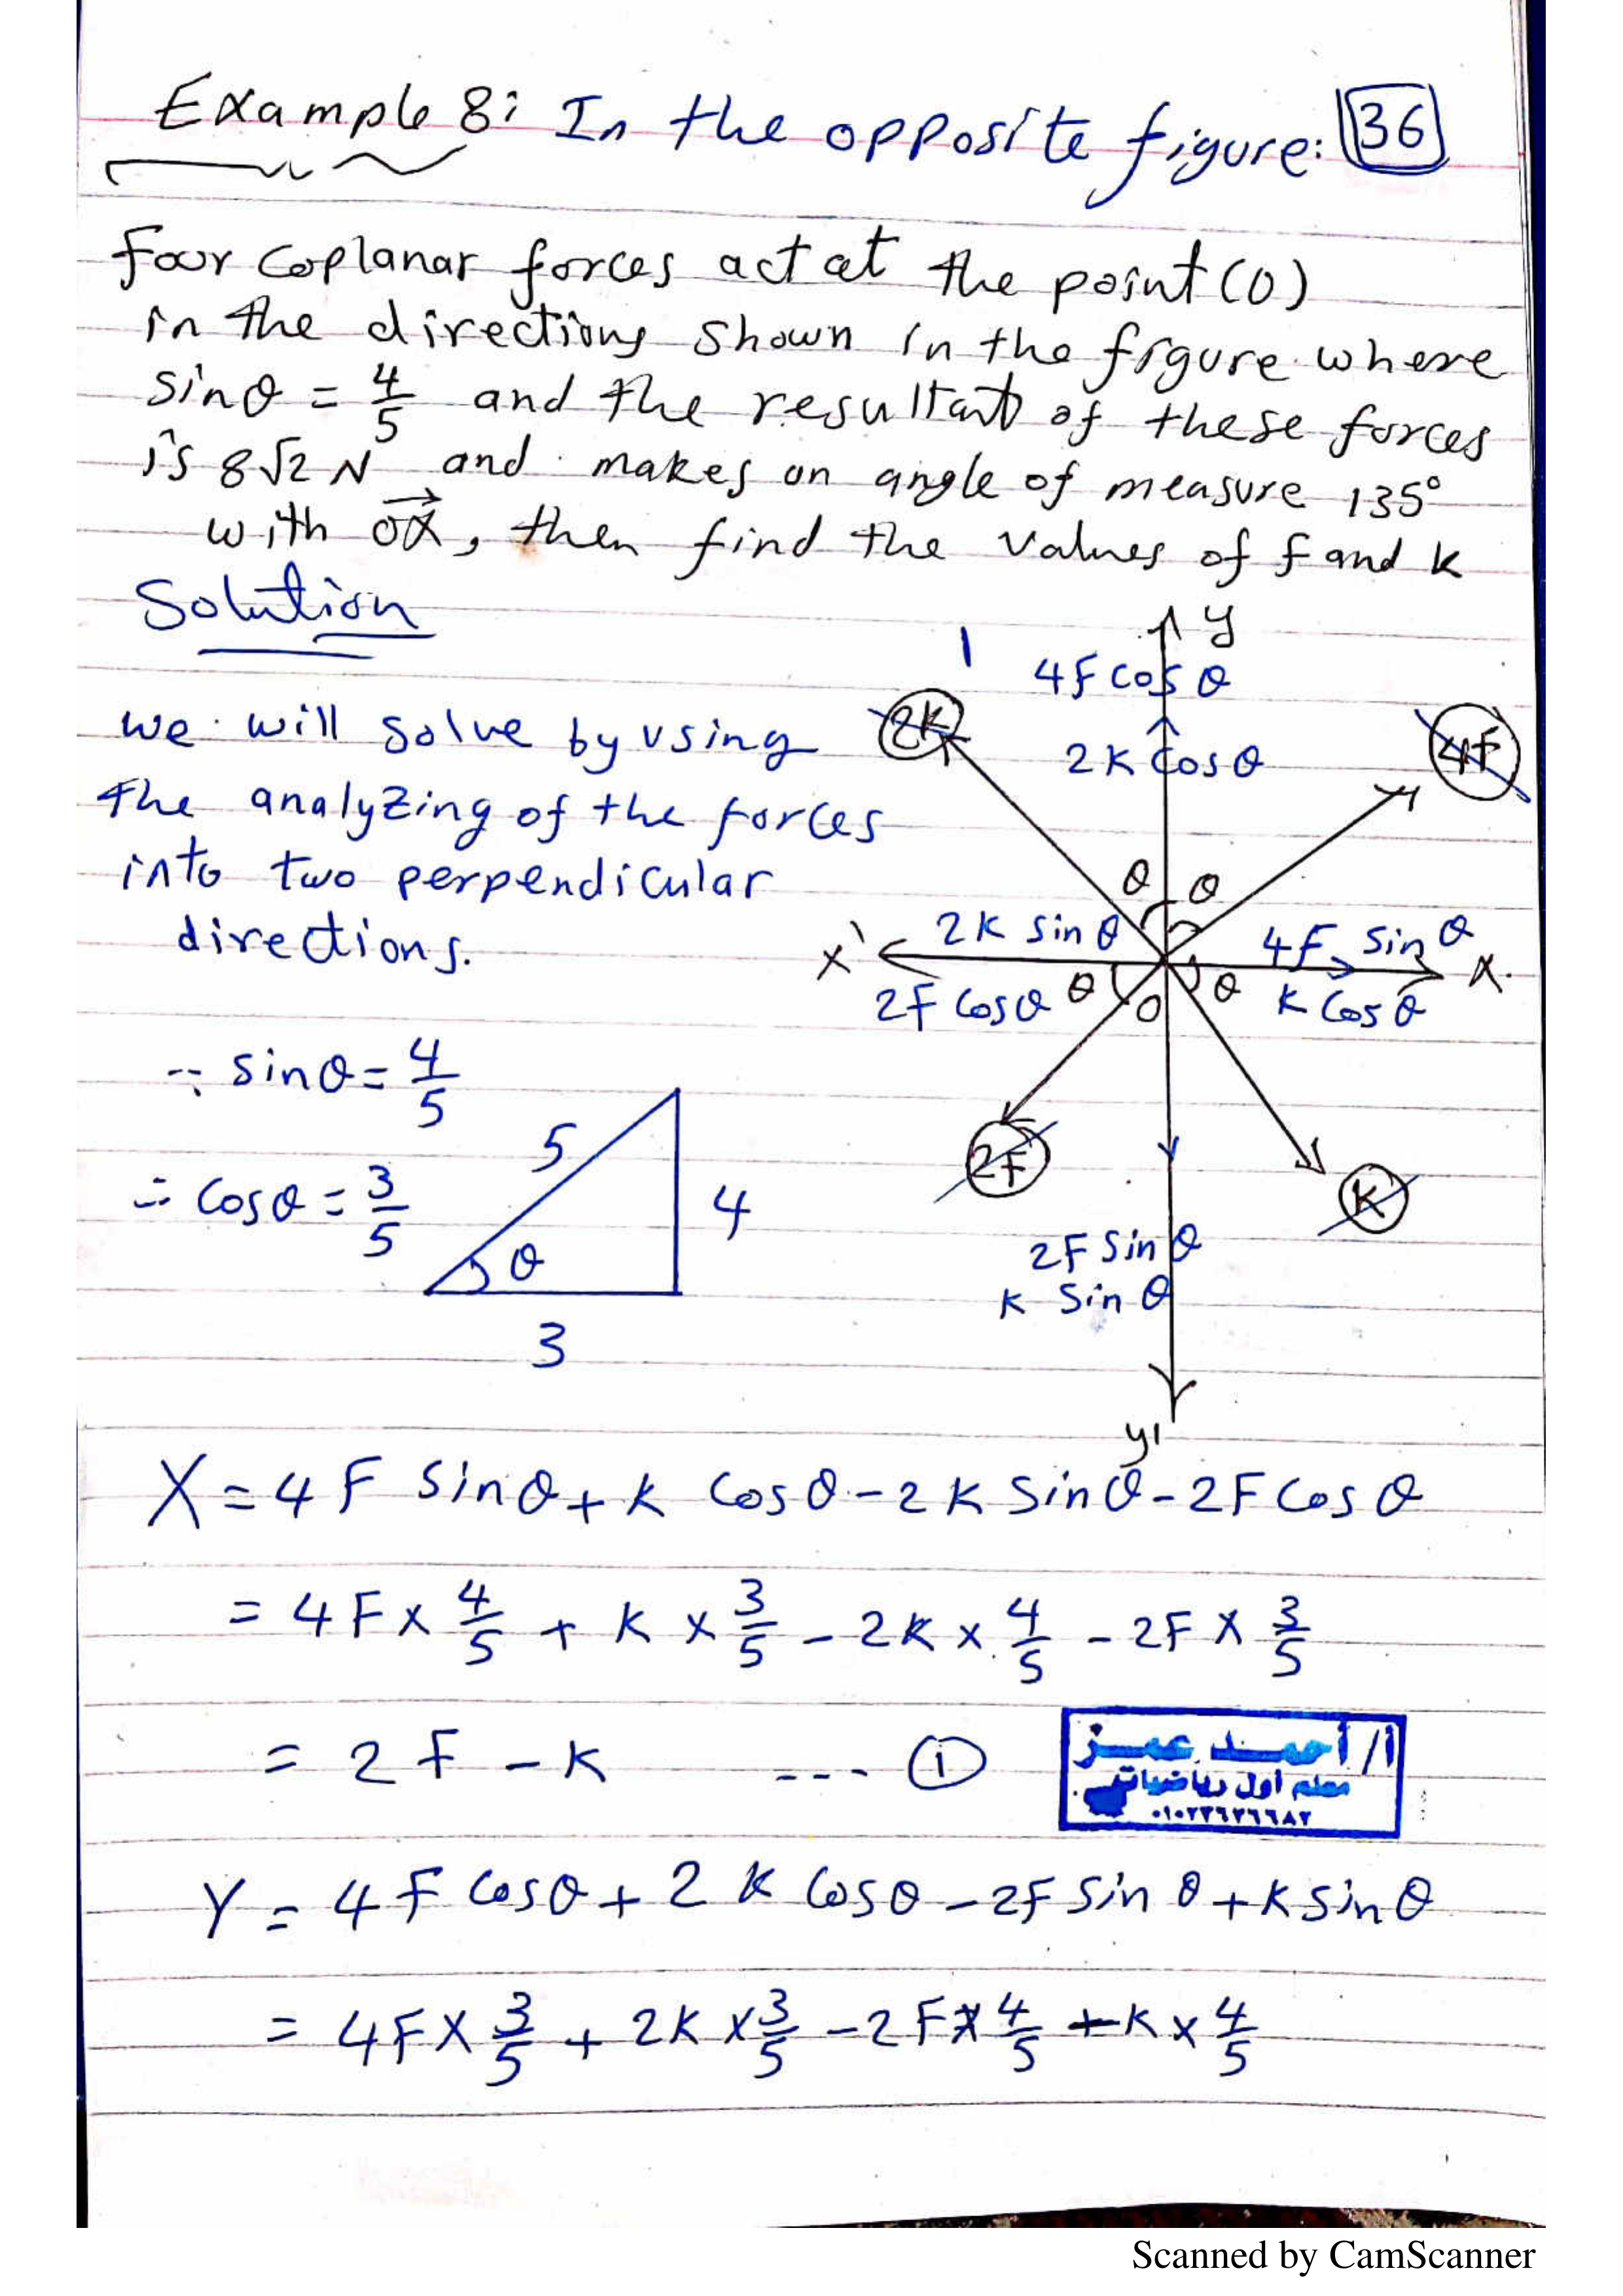 Example 8: In the opposite figure: 36
Four coplanar forces act at the point (O)
in the directions shown in the figure where
sinθ = 4/5 and the resultant of these forces
is 8√2 N and makes an angle of measure 135°
with OX, then find the values of F and K
Solution
y
4F cos θ
2K
2K cosθ
4F
we will solve by using
the analyzing of the forces
into two perpendicular
directions.
θ θ
2K sin θ
4F sin θ
x'
x
2F cosθ
θ
O
θ
K cos θ
∵ sinθ = 4/5
2F
K
5
∴ cosθ = 3/5
4
θ
3
2F sin θ
K sin θ
y'
X = 4F sinθ + K cosθ - 2K sinθ - 2F cos θ
= 4F × 4/5 + K × 3/5 - 2K × 4/5 - 2F × 3/5
= 2F - K --- ①
أ/ أحمد عمر
معلم أول رياضيات
Y = 4F cosθ + 2K cosθ - 2F sin θ + K sin θ
= 4F × 3/5 + 2K × 3/5 - 2F × 4/5 + K × 4/5
Scanned by CamScanner